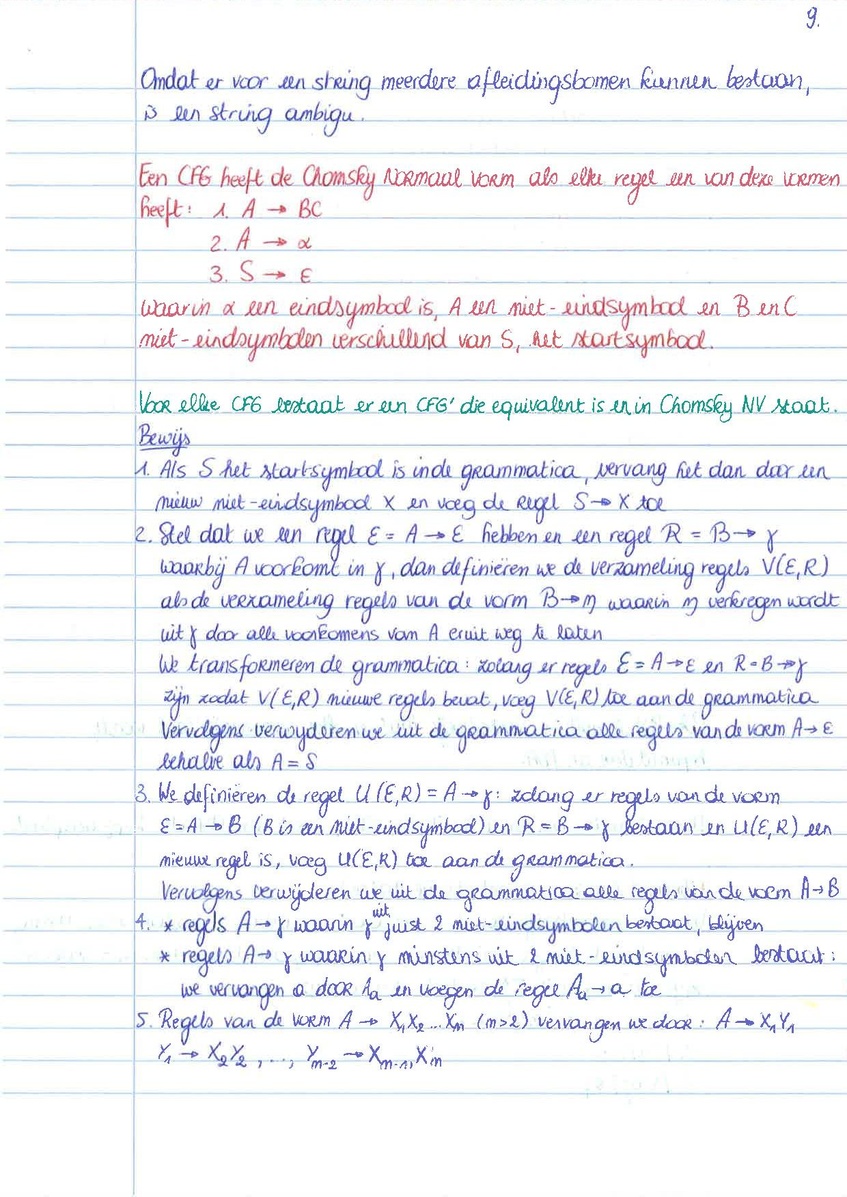 9.
Omdat er voor een string meerdere afleidingsbomen kunnen bestaan,
is een string ambigu.
Een CFG heeft de Chomsky Normaal Vorm als elke regel een van deze vormen
heeft: 1. A → BC
2. A → α
3. S → ε
waarin α een eindsymbool is, A een niet-eindsymbool en B en C
niet-eindsymbolen verschillend van S, het startsymbool.
Voor elke CFG bestaat er een CFG' die equivalent is en in Chomsky NV staat.
Bewijs
1. Als S het startsymbool is in de grammatica, vervang het dan door een
nieuw niet-eindsymbool X en voeg de regel S → X toe
2. Stel dat we een regel Ɛ = A → ε hebben en een regel R = B → γ
waarbij A voorkomt in γ, dan definiëren we de verzameling regels V(Ɛ,R)
als de verzameling regels van de vorm B → η waarin η verkregen wordt
uit γ door alle voorkomens van A eruit weg te laten
We transformeren de grammatica: zolang er regels Ɛ = A → ε en R = B → γ
zijn zodat V(Ɛ,R) nieuwe regels bevat, voeg V(Ɛ,R) toe aan de grammatica
Vervolgens verwyderen we uit de grammatica alle regels van de vorm A → ε
behalve als A = S
3. We definiëren de regel U(Ɛ,R) = A → γ: zolang er regels van de vorm
Ɛ = A → B (B is een niet-eindsymbool) en R = B → γ bestaan en U(Ɛ,R) een
nieuwe regel is, voeg U(Ɛ,R) toe aan de grammatica.
Vervolgens verwijderen we uit de grammatica alle regels van de vorm A → B
4. * regels A → γ waarin γ uit juist 2 niet-eindsymbolen bestaat, blijven
* regels A → γ waarin γ minstens uit 2 niet-eindsymbolen bestaat:
we vervangen a door Aₐ en voegen de regel Aₐ → a toe
5. Regels van de vorm A → X₁X₂...Xₘ (m>2) vervangen we door: A → X₁Y₁
Y₁ → X₂Y₂, ..., Yₘ₋₂ → Xₘ₋₁, Xₘ